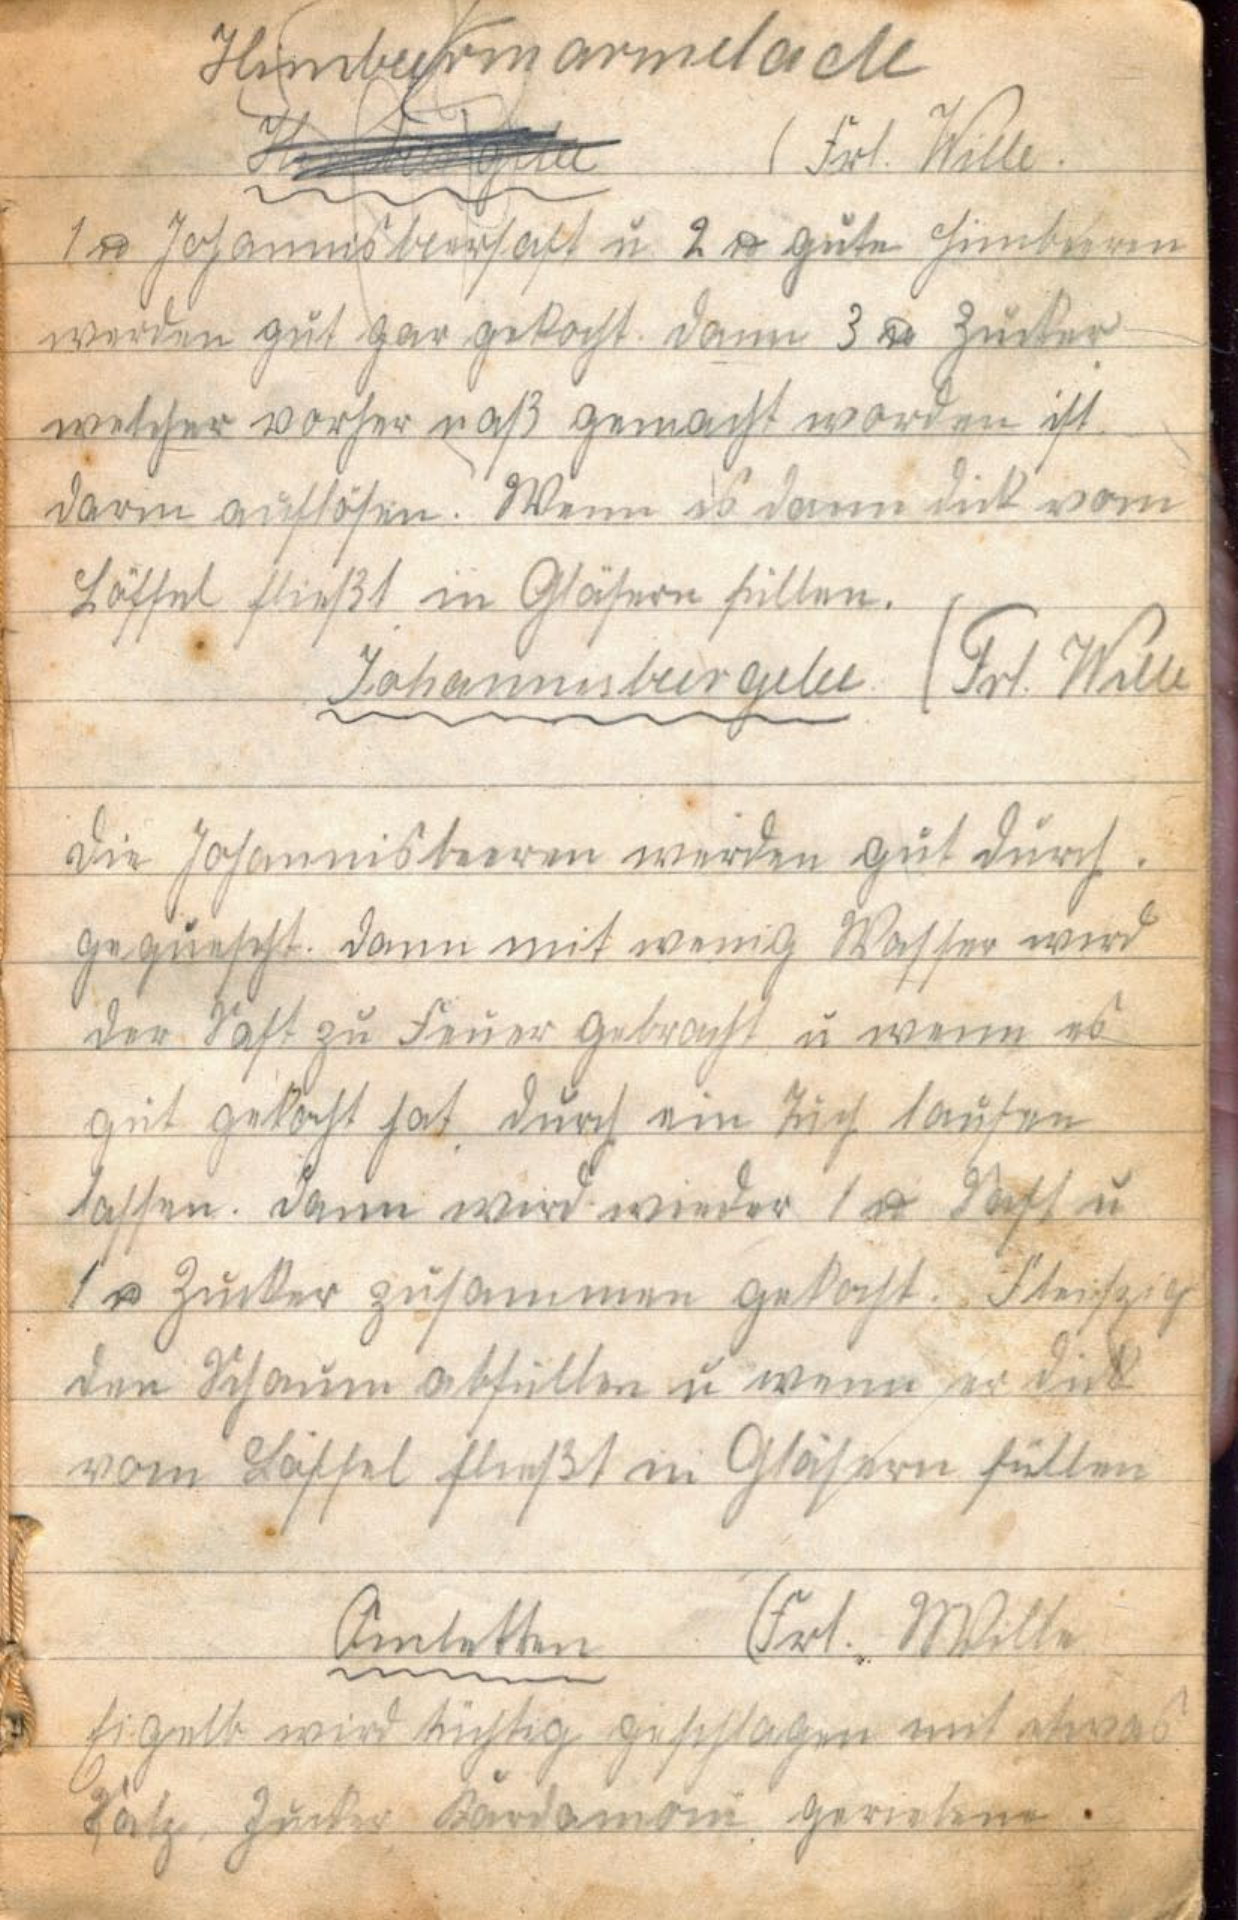 Himbeermarmelade
(Frl. Wille.
1 ℔ Johannisbeersaft u 2 ℔ gute Himbeeren
werden gut gar gekocht. Dann 3 ℔ Zucker
welcher vorher naß gemacht worden ist
darin auflösen. Wenn es dann dick vom
Löffel fließt in Gläsern füllen.
Johannisbeergelee (Frl. Wille
Die Johannisbeeren werden gut durch.
gequescht. Dann mit wenig Wasser wird
der Saft zu Feuer gebracht u wenn es
gut gekocht hat durch ein Tuch laufen
lassen. Dann wird wieder 1 ℔ Saft u
1 ℔ Zucker zusammen gekocht. Fleiszig
den Schaum abfüllen u wenn er dick
vom Löffel fließt in Gläsern füllen
Omletten (Frl. Wille
Eigelb wird tüchtig geschlagen mit etwas
Salz, Zucker Kardamom, geriebene.